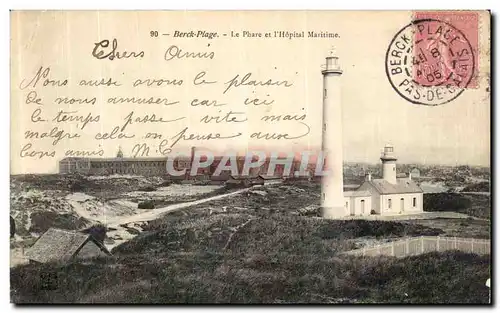 90 - Berck-Plage. - Le Phare et l'Hôpital Maritime.
Chers Amis
Nous aussi avons le plaisir
de nous amuser car ici
le temps passe vite mais
malgré cela on pense aux
bons amis M.C
BERCK-PLAGE
05
PAS-DE-CALAIS
CPARAMA